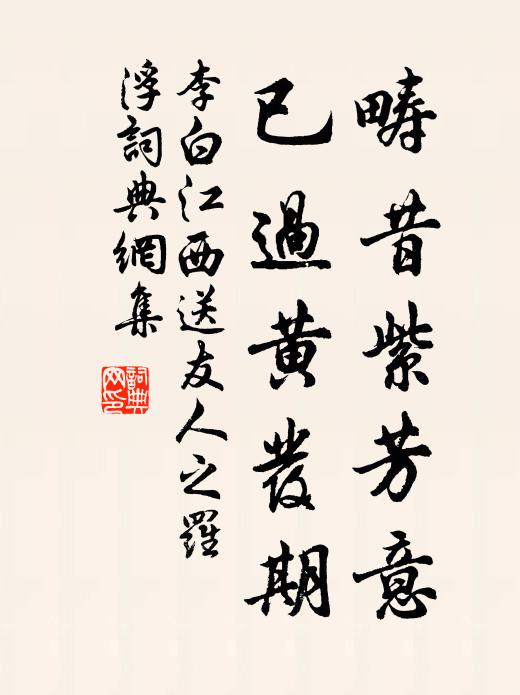 疇昔紫芳意
已過黃發期
李白江西送友人之羅
浮詞典網集
詞典網印